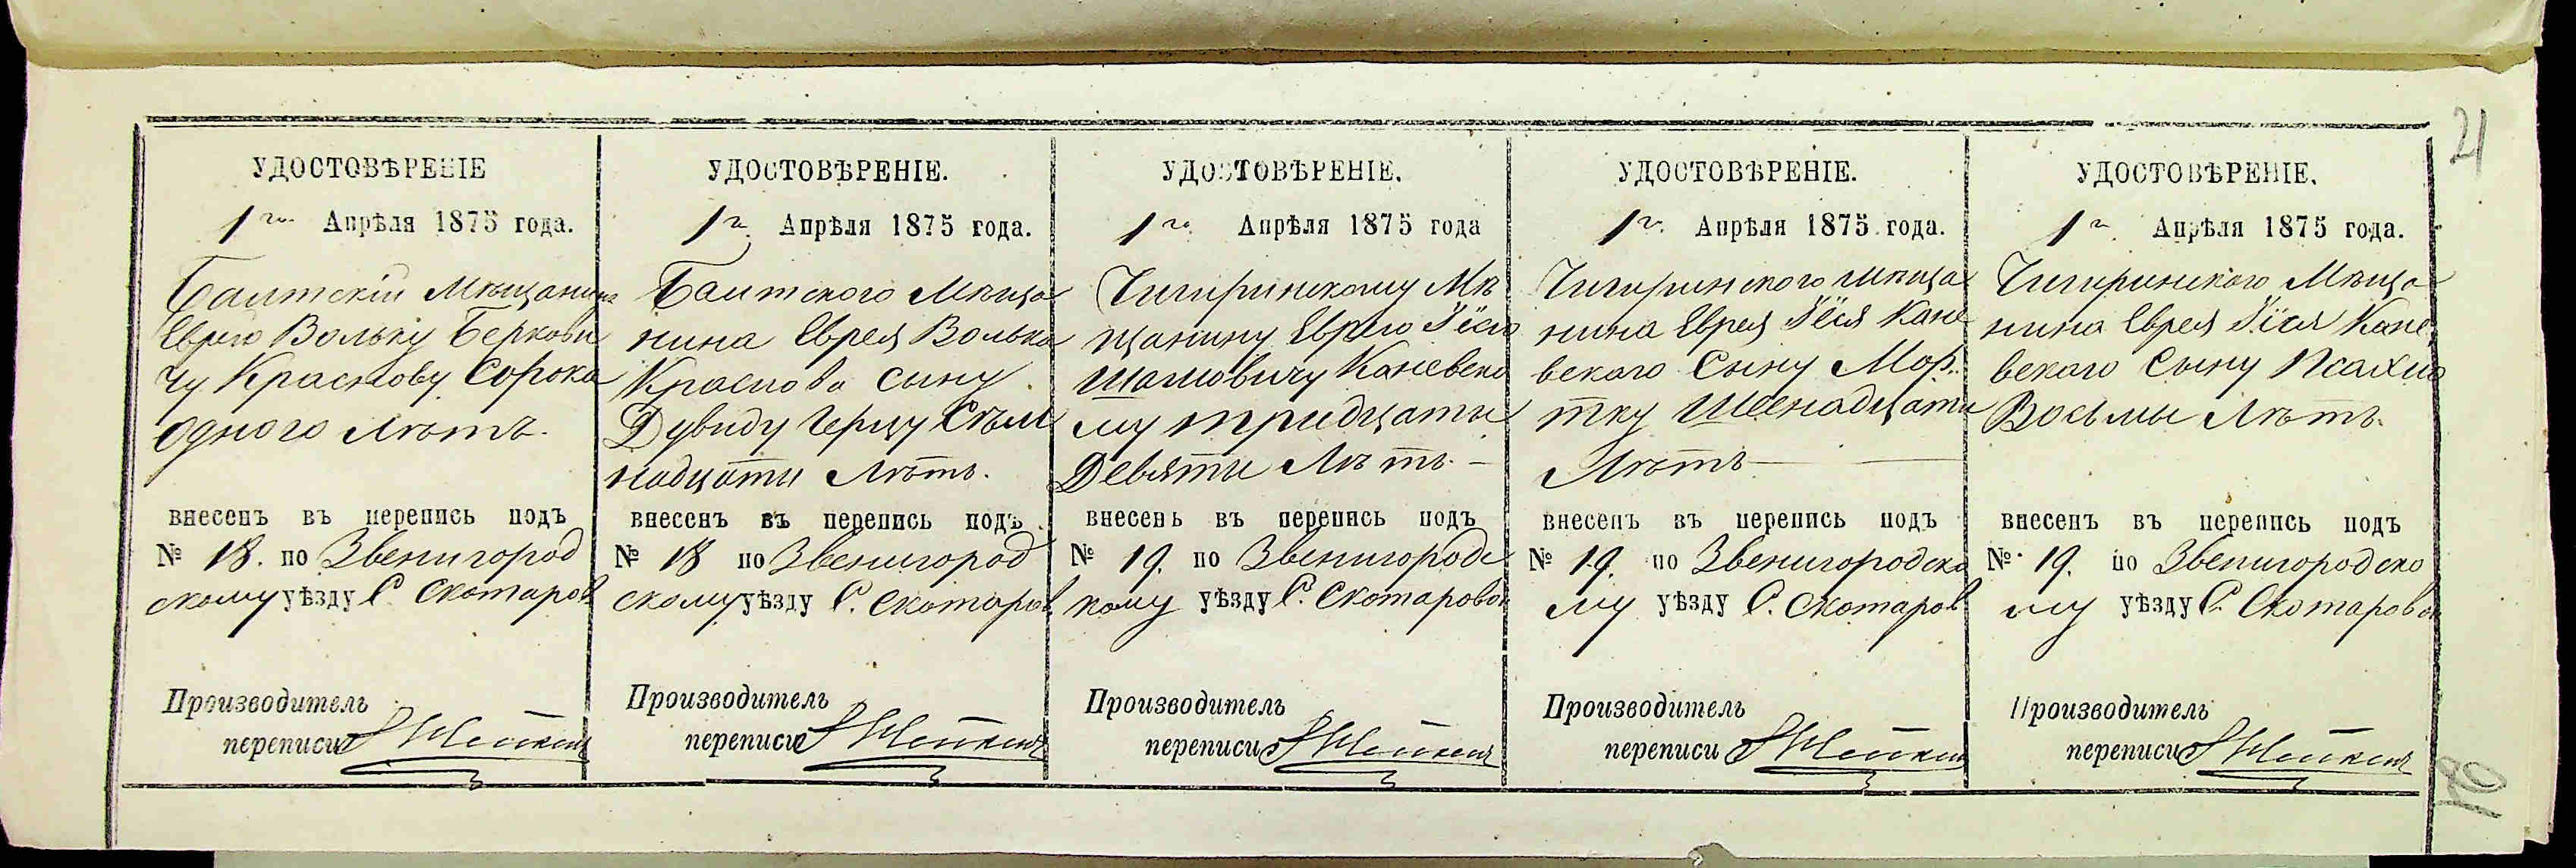 21
УДОСТОВѢРЕНІЕ
1го Апрѣля 1875 года.
Балтскій Мѣщанину
Еврею Вольку Беркови
чу Краснову Сорока
одного лѣтъ.
внесенъ въ перепись подъ
№ 18. по Звенигород
скому уѣзду С. Скотарев
Производитель
переписи
УДОСТОВѢРЕНІЕ.
1го Апрѣля 1875 года.
Балтского Мѣща
нина Еврея Волька
Краснова сыну
Дувиду Герцу Сѣм
надцати лѣтъ.
внесенъ въ перепись подъ
№ 18 по Звенигород
скому уѣзду С. Скотарев
Производитель
переписи
УДОСТОВѢРЕНІЕ.
1го Апрѣля 1875 года
Чигиринскому Мѣ
щанину Еврею
Шамовичу Каневско
му тридцати
Девяти Лѣтъ. -
внесенъ въ перепись подъ
№ 19. по Звенигородс
кому уѣзду С. Скотаровок
Производитель
переписи
УДОСТОВѢРЕНІЕ.
1го Апрѣля 1875 года.
Чигиринского мѣща
нина Еврея Кане
вского Сыну Мор
тку Шеснадцати
Лѣтъ
внесенъ въ перепись подъ
№ 19. по Звенигородско
му уѣзду С. Скотаров
Производитель
переписи
УДОСТОВѢРЕНІЕ.
1го Апрѣля 1875 года.
Чигиринского Мѣща
нина Еврея Кане
вского Сыну Псахию
Восьмы Лѣтъ.
внесенъ въ перепись подъ
№ 19. по Звенигородско
му уѣзду С. Скотаровок
Производитель
переписи